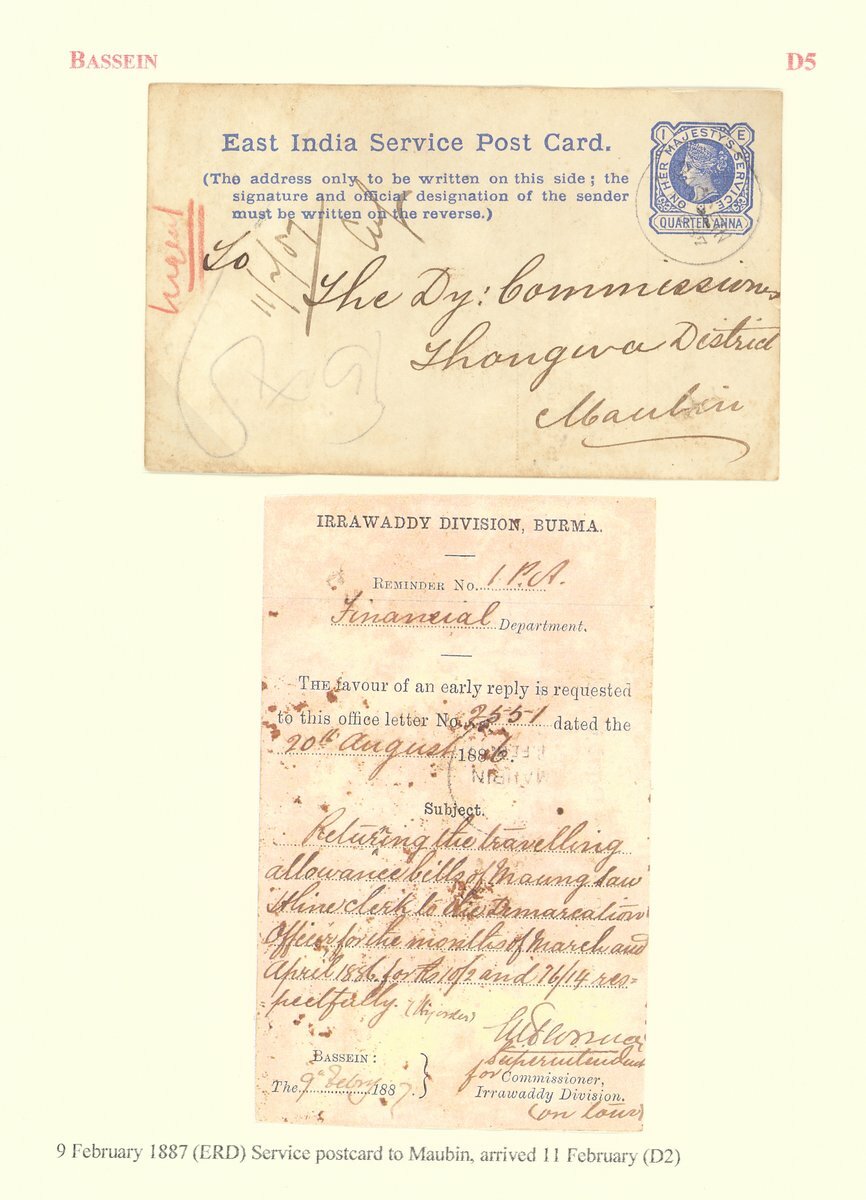 BASSEIN
D5
East India Service Post Card.
(The address only to be written on this side; the
signature and official designation of the sender
must be written on the reverse.)
I E
ON HER MAJESTY'S SERVICE
QUARTER ANNA
Urgent
11/2/87
To
The Dy: Commissioner
Thongwa District
Maubin
IRRAWADDY DIVISION, BURMA.
REMINDER No. 1 P.A.
Financial Department.
THE favour of an early reply is requested
to this office letter No. 2551 dated the
20th August 1886.
MAUBIN
Subject.
Returing the travelling
allowance bills of Maung Saw
Hline clerk to the Demarcation
Officer for the months of March and
April 1886 for Rs 10/2 and 76/14 res=
pectfully. (By order)
Superintendent
BASSEIN:
for Commissioner,
The 9th Febry 1887.
Irrawaddy Division.
(on tour)
9 February 1887 (ERD) Service postcard to Maubin, arrived 11 February (D2)